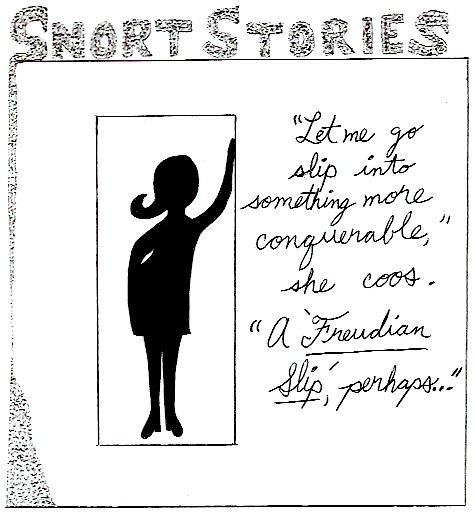 SNORT STORIES
"Let me go
slip into
something more
conquerable,"
she coos.
"A 'Freudian
Slip', perhaps..."